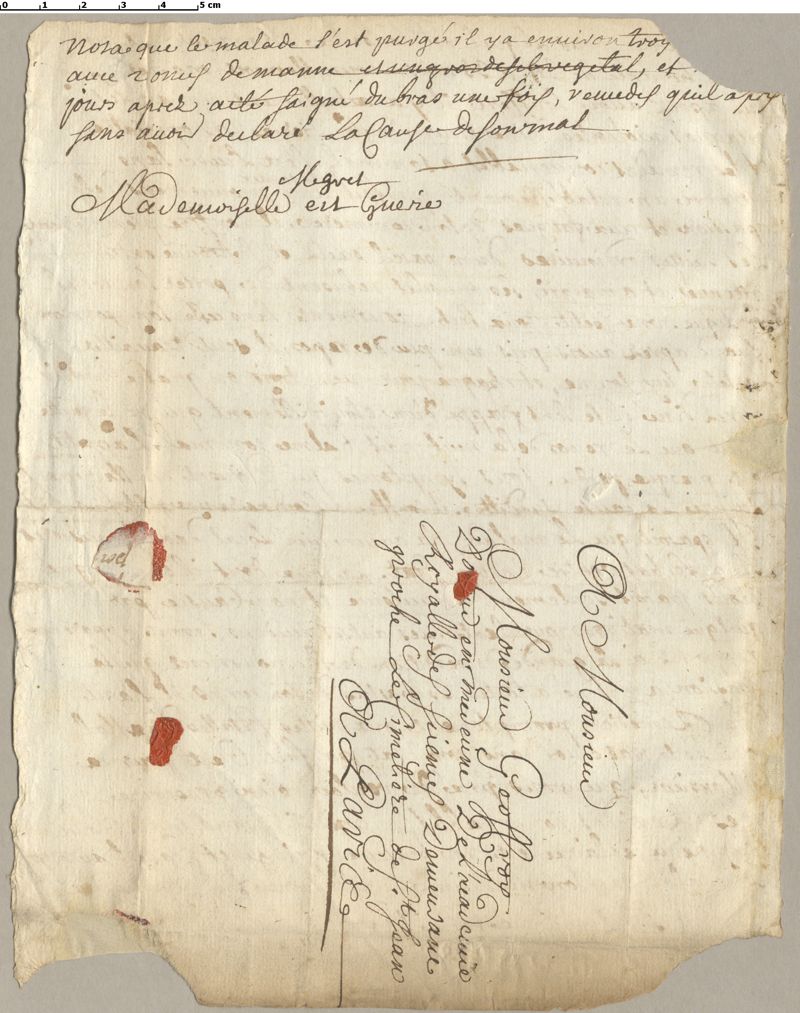 Nota que le malade s'est purgé il ya environ troy
avec 2 onces de manne et un gros de sel vegetal, et
jours aprez a eté saigné du bras une fois, remedes qu'il a prý
sans avoir declaré La Cause de son mal
Megret
Mademoiselle est Guerie
A Monsieur
Monsieur Geoffroy
en medecine De L'academie
Royalle des Siences Demeurant
proche Le Cimetiere de St Jean
A Paris